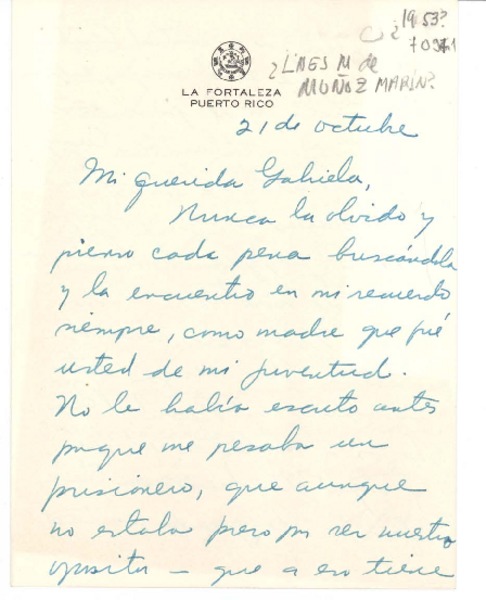 ¿1953?
¿INES M de
MUÑOZ MARIN?
LA FORTALEZA
PUERTO RICO
21 de octubre
Mi querida Gabriela,
Nunca la olvido y
pienso cada pena buscándola
y la encuentro en mi recuerdo
siempre, como madre que fué
usted de mi juventud.
No le había escrito antes
porque me pesaba un
prisionero, que aunque
no estaba preso por ser nuestro
opositor — que a eso tiene